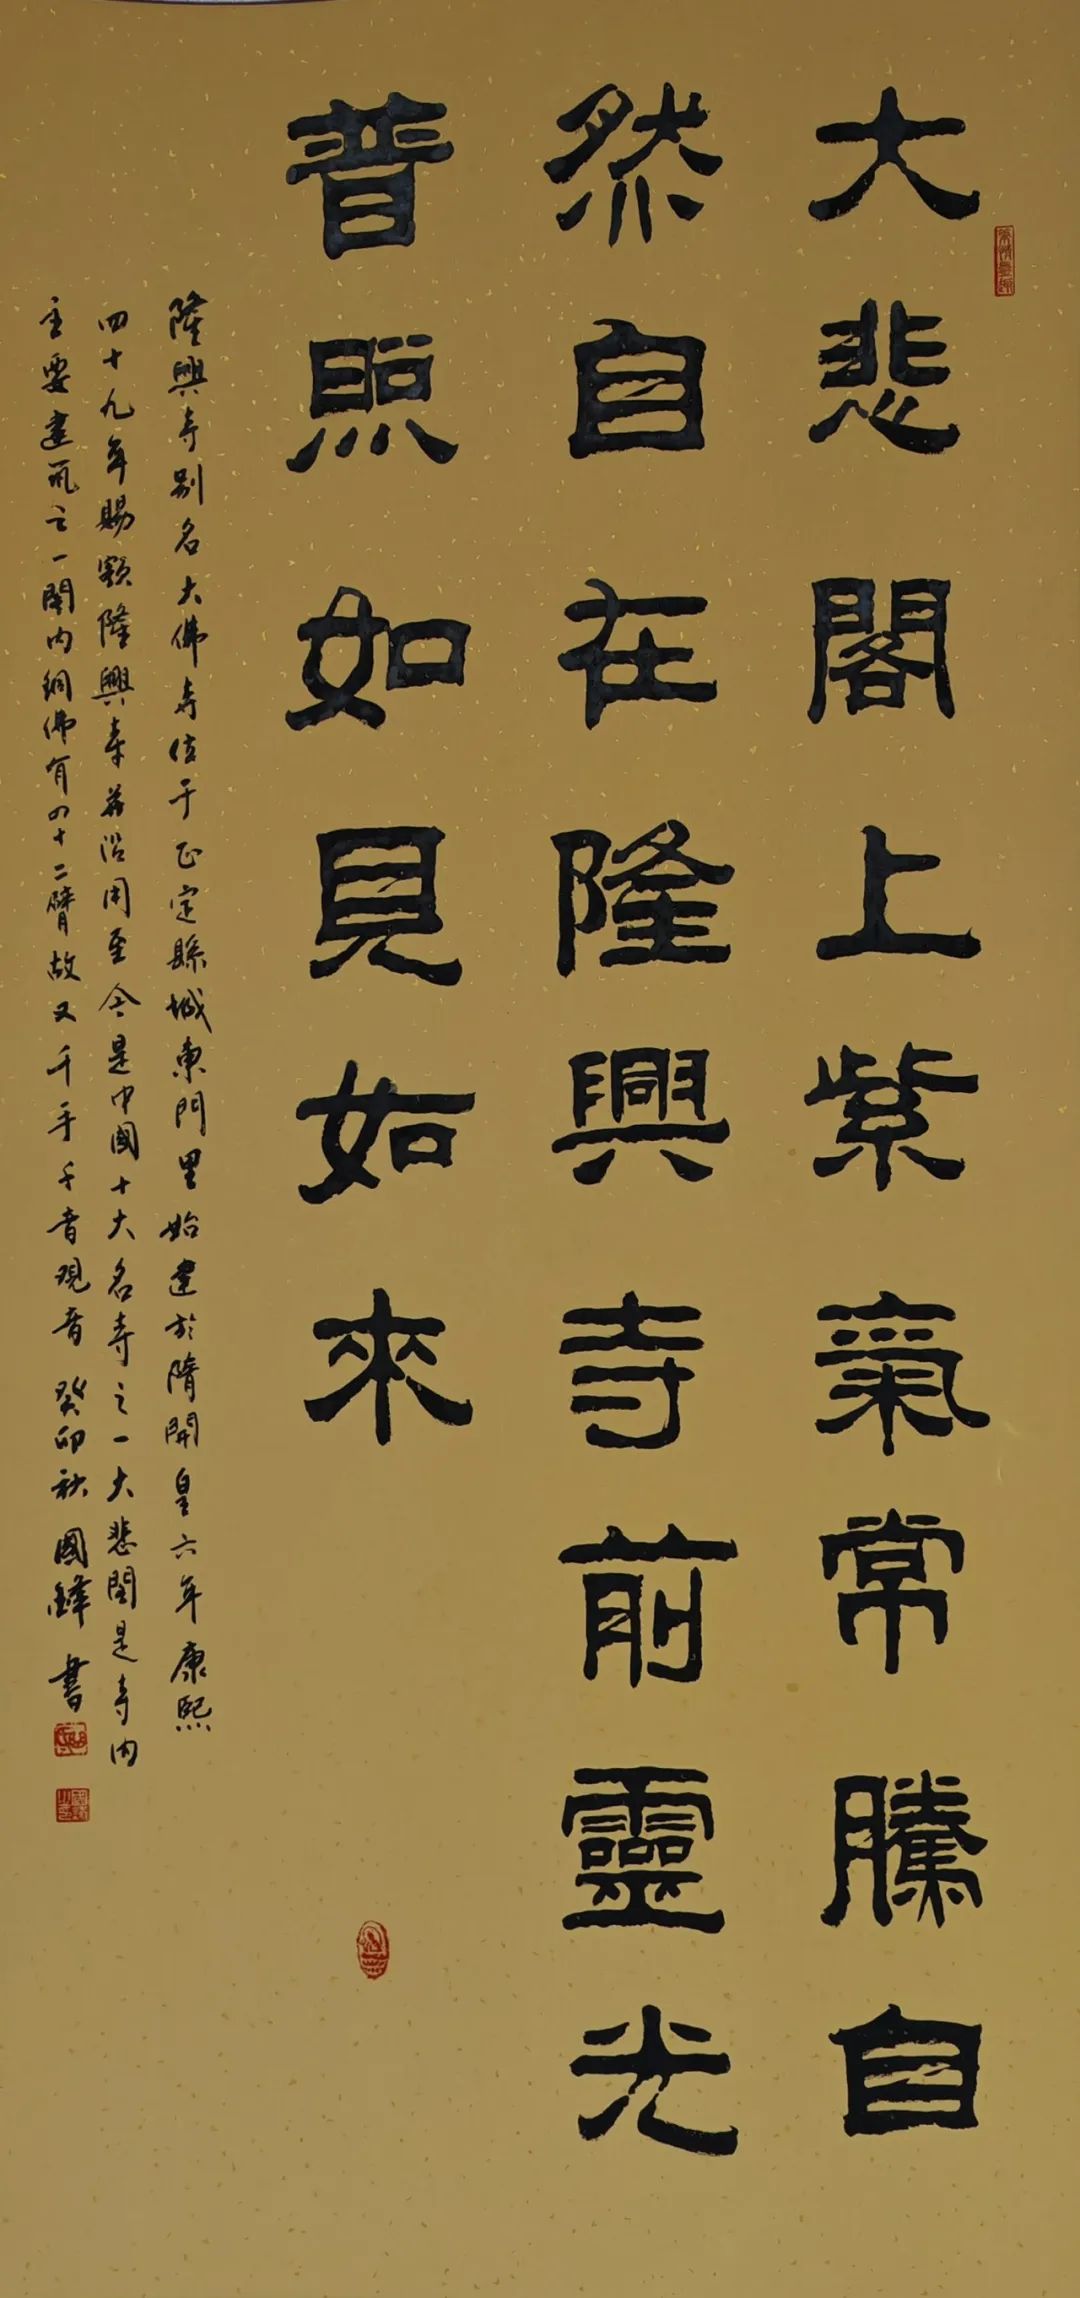 大悲閣上紫氣常騰自
然自在隆興寺前靈光
普照如見如來
隆興寺别名大佛寺位于正定縣城東門里始建於隋開皇六年康熙
四十九年賜额隆興寺并沿用至今是中國十大名寺之一大悲閣是寺内
主要建筑之一閣内銅佛有四十二臂故又千手千音观音癸卯秋國鋒書